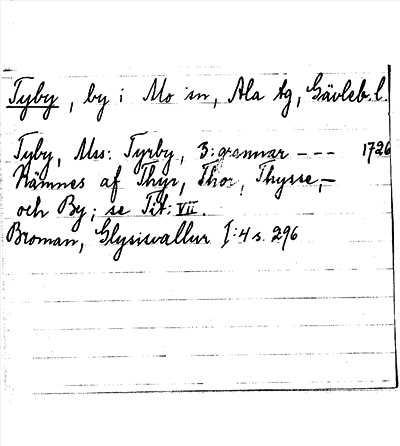 Tyby, by i Mo sn, Ala tg, Gävleb.l.
Tyby, Mss: Tyrby, 3: grannar --- 1726
Nämnes af Thyr, Thor, Thysse,-
och By; se Tit: VII.
Broman, Glysisvallur I:4 s. 296